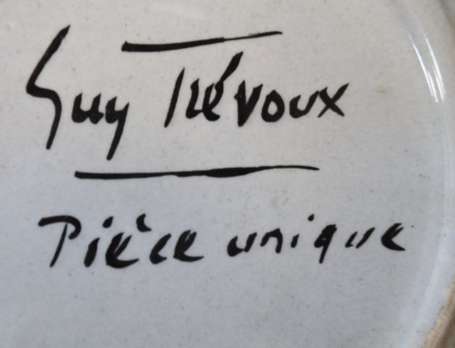 Guy Trévoux
Pièce unique